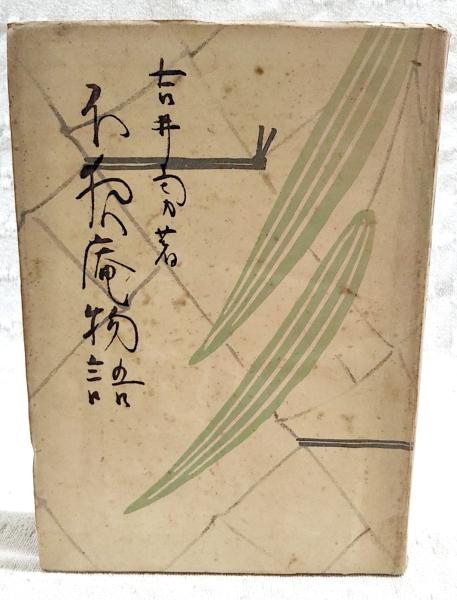 吉井勇著
不夜庵物語